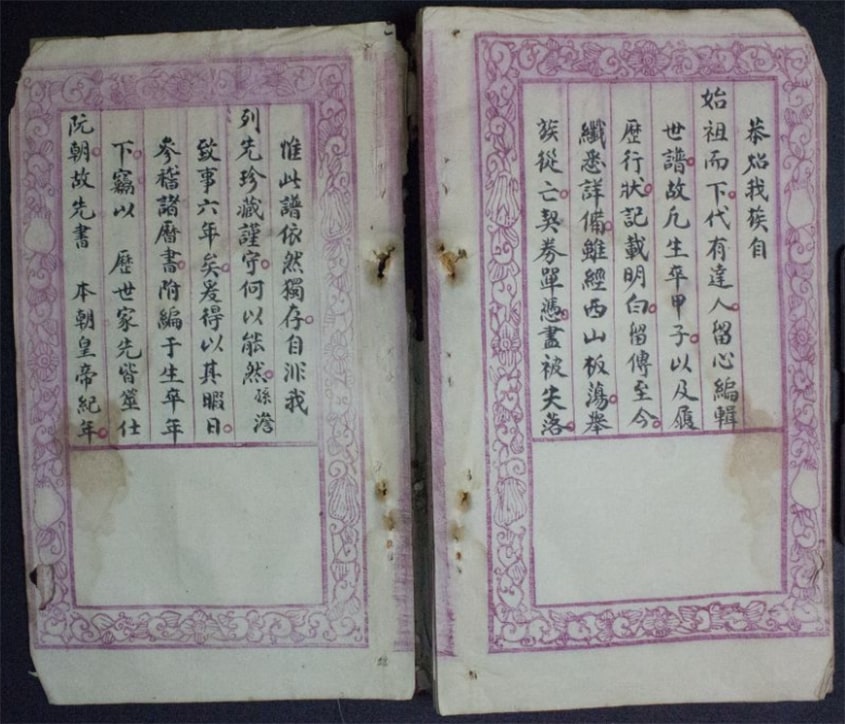 恭炤我族自
始祖而下代有達人留心編輯
世譜故凡生卒甲子以及履
歷行狀記載明白留傳至今
纖悉詳備雖經西山板蕩舉
族從亡契券單憑盡被失落
惟此譜依然獨存自非我
列先珍藏謹守何以能然孫澹
致事六年矣爰得以其暇日
參稽諸曆書附編于生卒年
下竊以 歷世家先皆筮仕
阮朝故先書 本朝皇帝紀年